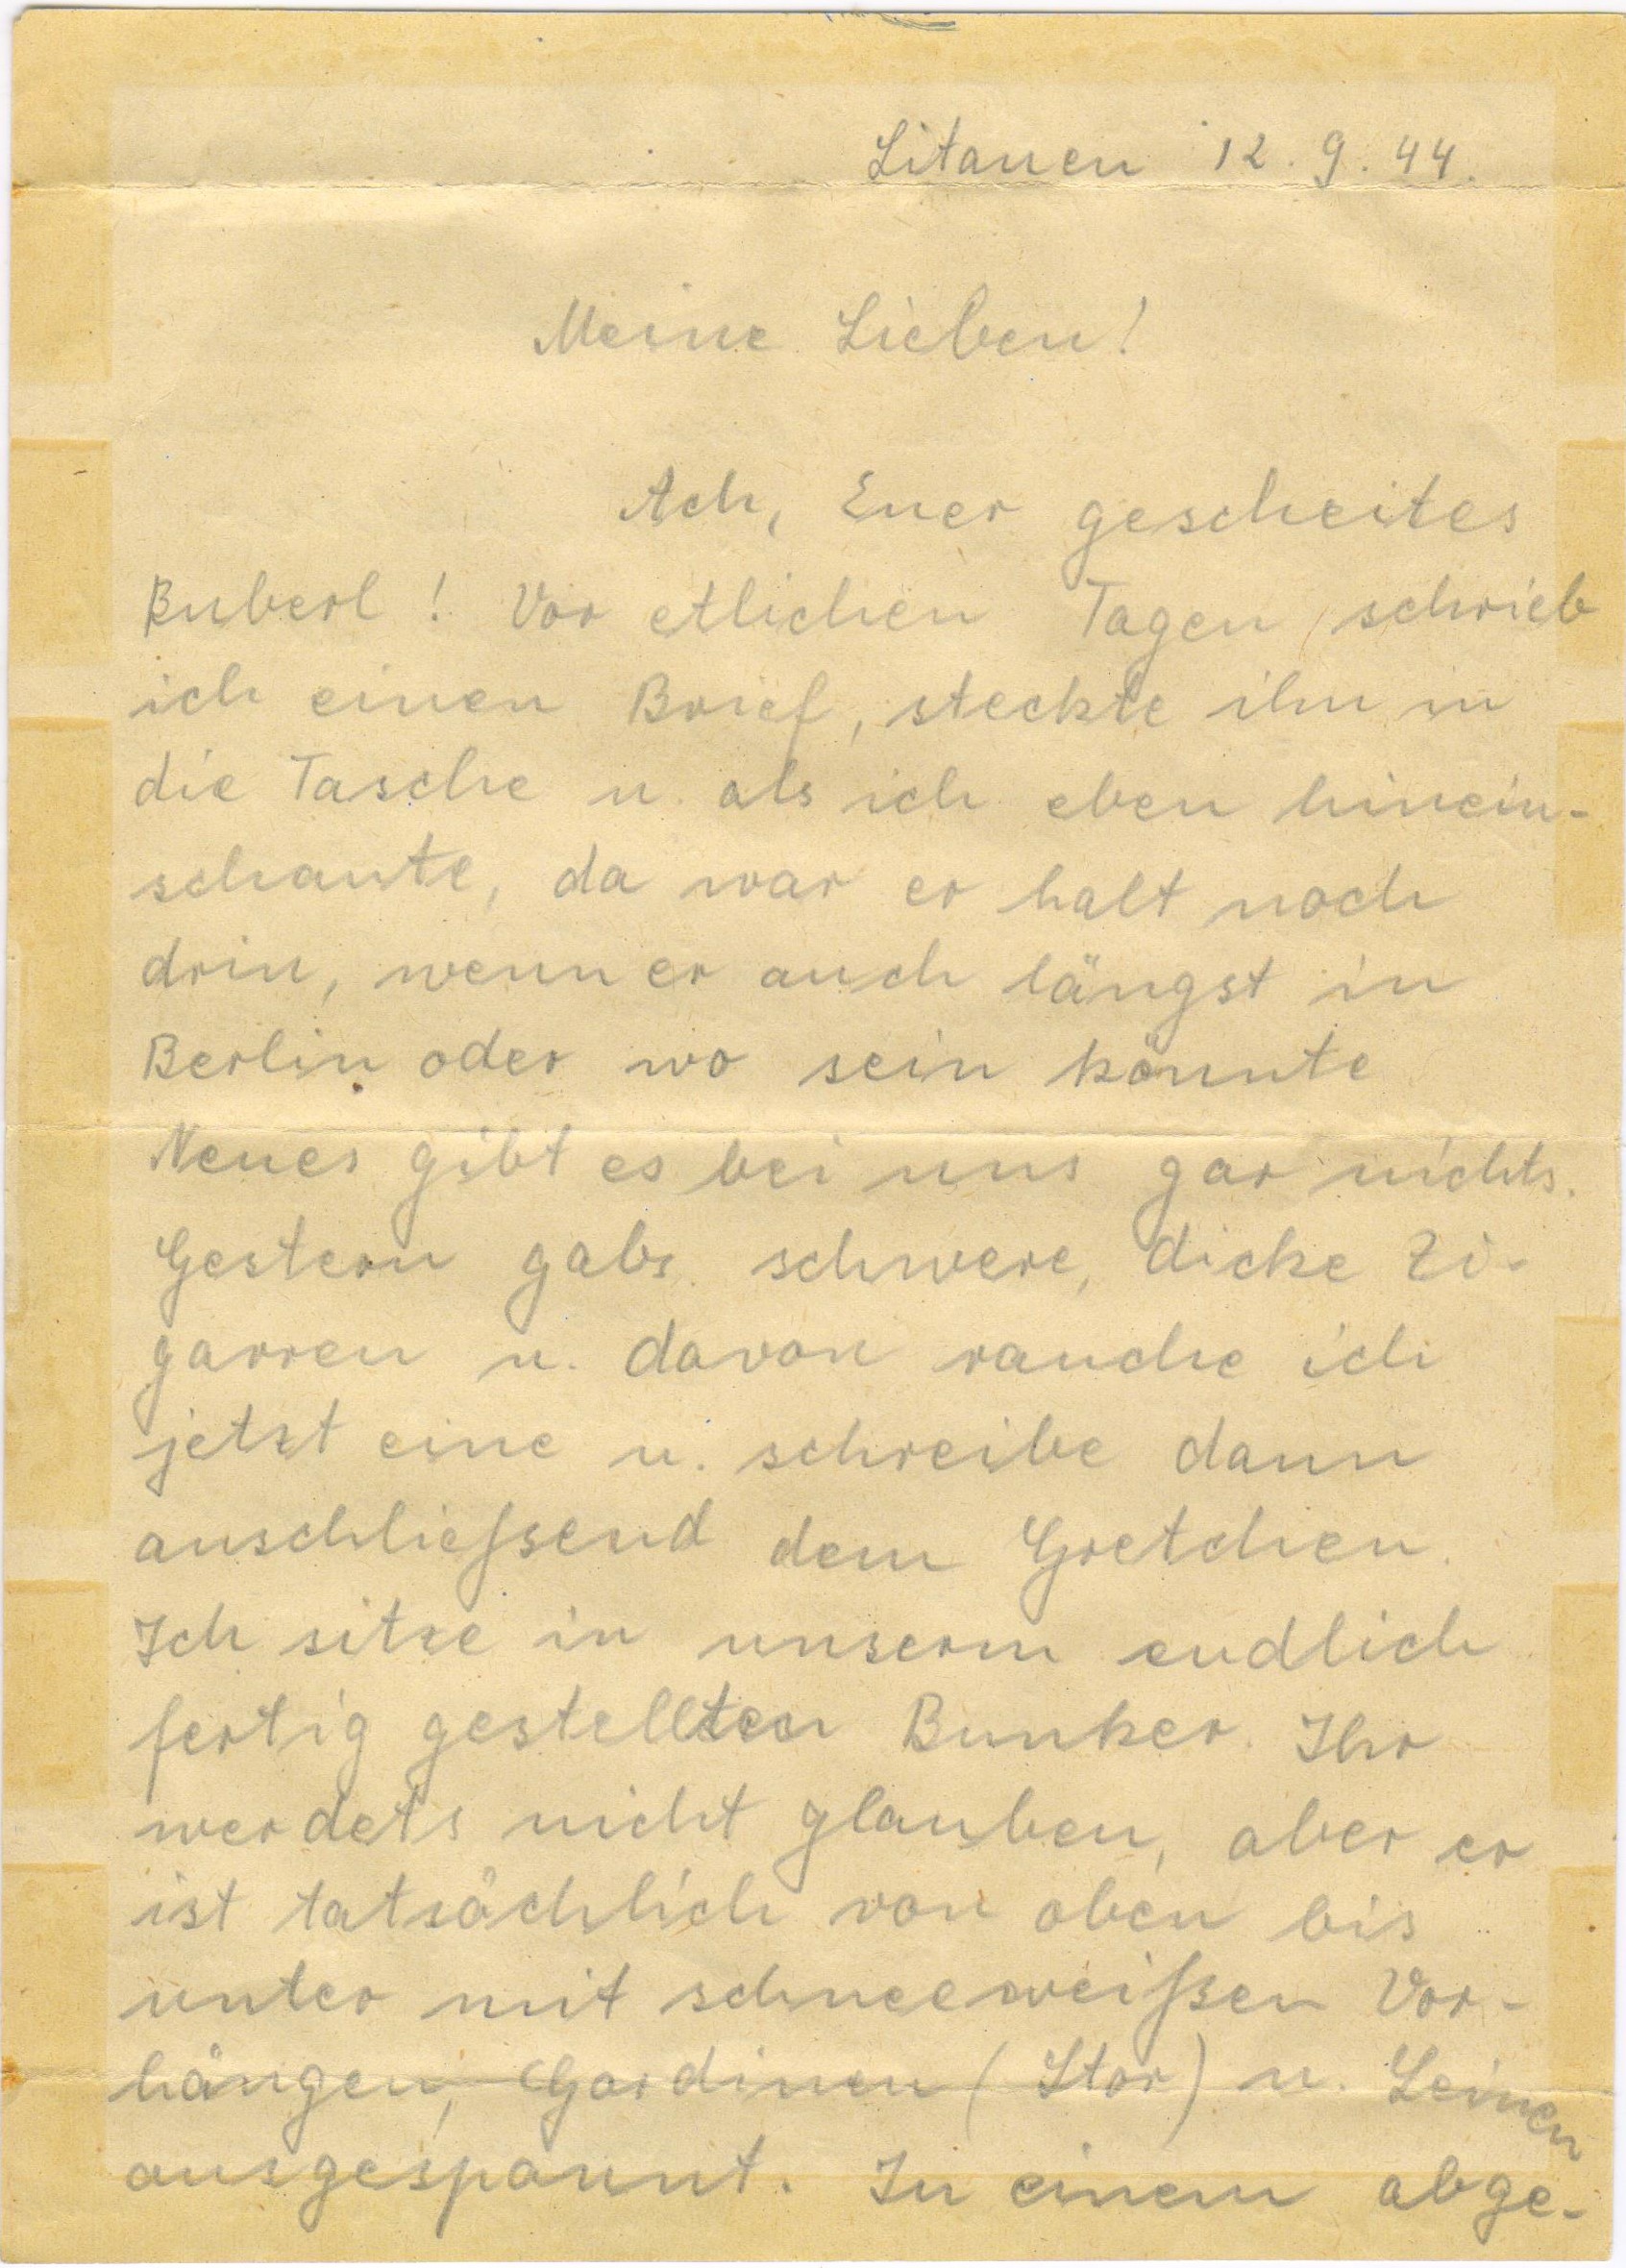 Litauen 12.9.44.
Meine Lieben!
Ach, Euer gescheites
Buberl! Vor etlichen Tagen schrieb
ich einen Brief, steckte ihn in
die Tasche u. als ich eben hinein-
schaute, da war er halt noch
drin, wenn er auch längst in
Berlin oder wo sein könnte
Neues gibt es bei uns gar nichts.
Gestern gabs schwere, dicke Zi-
garren u. davon rauche ich
jetzt eine u. schreibe dann
anschließsend dem Gretchen.
Ich sitze in unserm endlich
fertig gestellten Bunker. Ihr
werdets nicht glauben, aber er
ist tatsächlich von oben bis
unter mit schneeweißen Vor-
hängen, Gardinen (Stor) u. Leinen
ausgespannt. In einem abge-